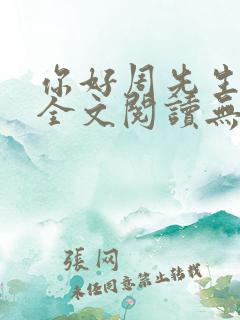 你好周先生
全文閱讀無
張网
未经同意禁止转载